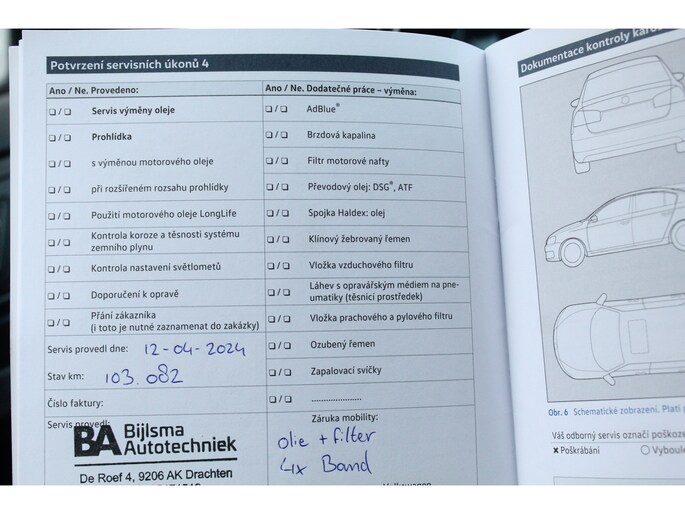 Potvrzení servisních úkonů 4
Ano / Ne. Provedeno:
❏ / ❏ Servis výměny oleje
❏ / ❏ Prohlídka
❏ / ❏ s výměnou motorového oleje
❏ / ❏ při rozšířeném rozsahu prohlídky
❏ / ❏ Použití motorového oleje LongLife
❏ / ❏ Kontrola koroze a těsnosti systému
zemního plynu
❏ / ❏ Kontrola nastavení světlometů
❏ / ❏ Doporučení k opravě
❏ / ❏ Přání zákazníka
(i toto je nutné zaznamenat do zakázky)
Servis provedl dne: 12-04-2024
Stav km: 103.082
Číslo faktury:
Servis provedl:
BA Bijlsma
Autotechniek
De Roef 4, 9206 AK Drachten
Ano / Ne. Dodatečné práce – výměna:
❏ / ❏ AdBlue®
❏ / ❏ Brzdová kapalina
❏ / ❏ Filtr motorové nafty
❏ / ❏ Převodový olej: DSG®, ATF
❏ / ❏ Spojka Haldex: olej
❏ / ❏ Klínový žebrovaný řemen
❏ / ❏ Vložka vzduchového filtru
❏ / ❏ Láhev s opravářským médiem na pne-
umatiky (těsnicí prostředek)
❏ / ❏ Vložka prachového a pylového filtru
❏ / ❏ Ozubený řemen
❏ / ❏ Zapalovací svíčky
❏ / ❏ .....................
Záruka mobility:
olie + filter
4x Band
Dokumentace kontroly
Obr. 6 Schematické zobrazení. Platí
Váš odborný servis označí
✗ Poškrábání ○